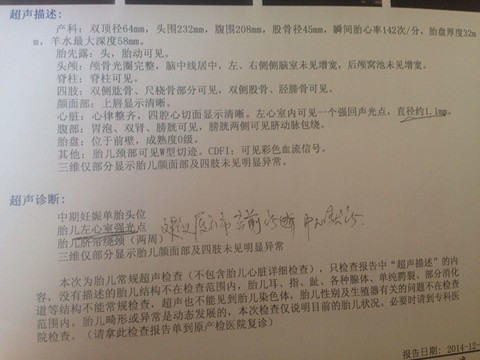 超声描述:
产科: 双顶径64mm, 头围232mm, 腹围208mm, 股骨径45mm, 瞬间胎心率142次/分, 胎盘厚度32m
m, 羊水最大深度58mm。
胎先露: 头, 胎动可见。
头颅: 颅骨光圈完整, 脑中线居中, 左、右侧侧脑室未见增宽, 后颅窝池未见增宽。
脊柱: 脊柱可见。
四肢: 双侧肱骨、尺桡骨部分可见, 双侧股骨、胫腓骨可见。
颜面部: 上唇显示清晰。
心脏: 心律整齐, 四腔心切面显示清晰。左心室内可见一个强回声光点, 直径约1.1mm。
腹部: 胃泡、双肾、膀胱可见, 膀胱两侧可见脐动脉包绕。
胎盘: 位于前壁, 成熟度0级。
其他: 胎儿颈部可见W型切迹。CDFI: 可见彩色血流信号。
三维仅部分显示胎儿颜面部及四肢未见明显异常。
超声诊断:
中期妊娠单胎头位
胎儿左心室强光点
胎儿脐带绕颈 (两周)
三维仅部分显示胎儿颜面部及四肢未见明显异常
本次为胎儿常规超声检查(不包含胎儿心脏详细检查), 只检查报告中“超声描述”的内
容, 没有描述的胎儿结构不在检查范围内, 胎儿耳、指、趾、各种腺体、单纯腭裂、部分消化
道等结构不能常规检查, 超声也不能见到胎儿染色体, 胎儿性别及生殖器有关的问题不在检查
范围内。胎儿畸形或异常是动态发展的, 本次检查仅说明目前的胎儿状况, 必要时请到专科医
院检查。(请拿此检查报告单到原产检医院复诊)
报告日期: 2014-12-